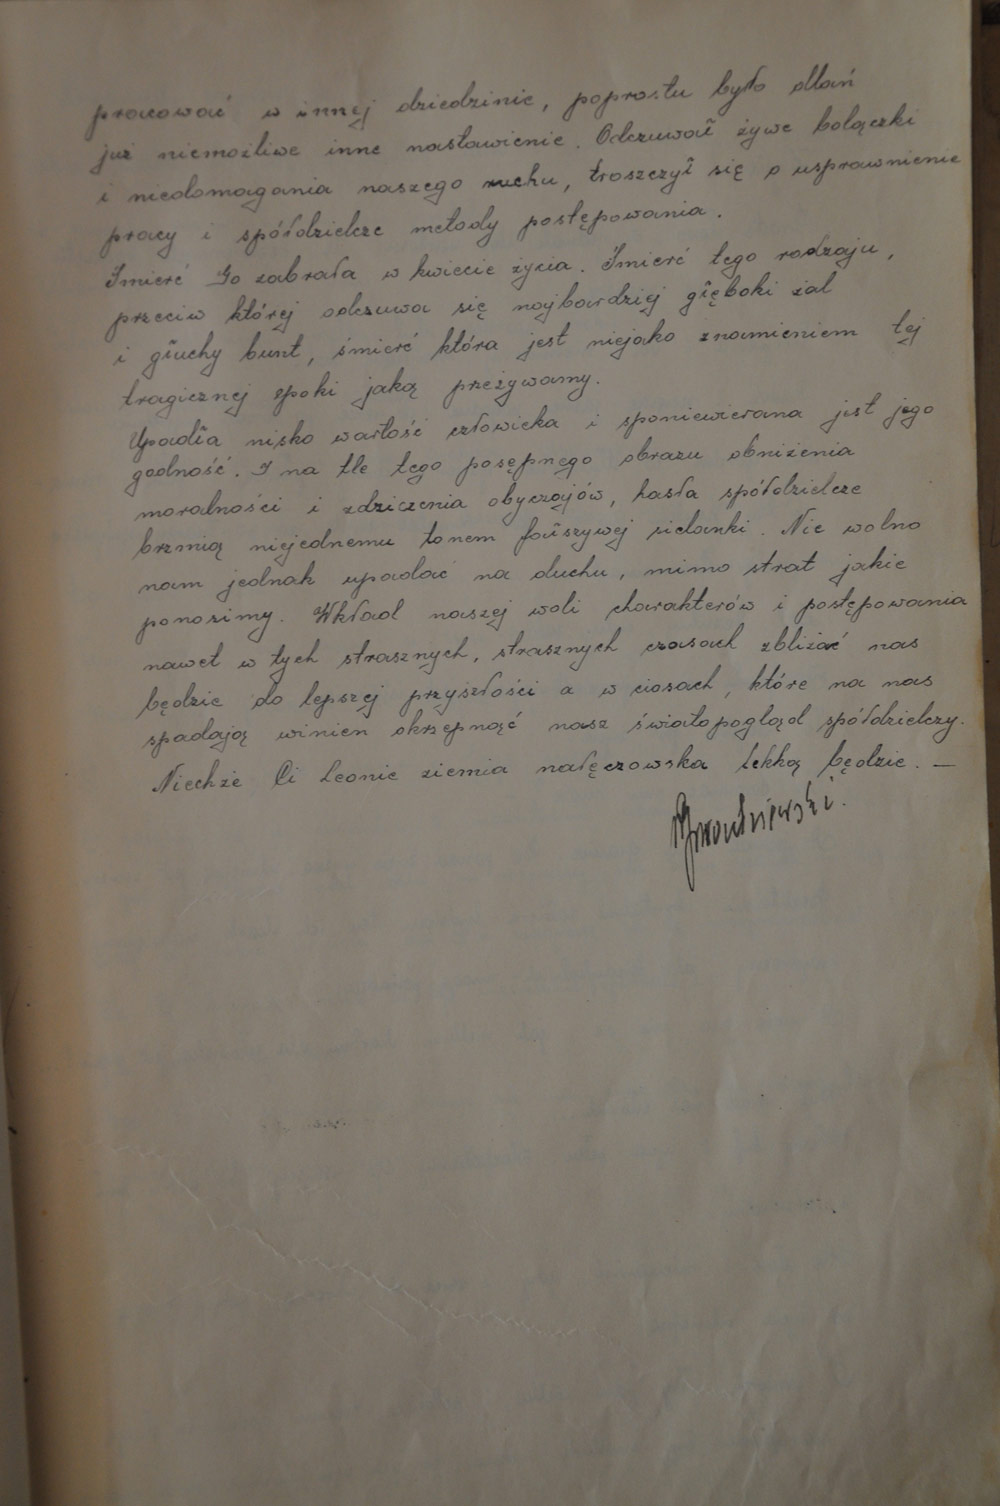 pracować w innej dziedzinie, poprostu było dlań
już niemożliwe inne nastawienie. Odczuwał żywe bolączki
i niedomagania naszego ruchu, troszczył się o usprawnienie
pracy i spółdzielcze metody postępowania.
Śmierć Go zabrała w kwiecie życia. Śmierć tego rodzaju,
przeciw której odczuwa się najbardziej głęboki żal
i głuchy bunt, śmierć która jest niejako znamieniem tej
tragicznej epoki jaką przeżywamy.
Upadła nisko wartość człowieka i sponiewierana jest jego
godność. I na tle tego posępnego obrazu obniżenia
moralności i zdziczenia obyczajów, hasła spółdzielcze
brzmią niejednemu tonem fałszywej sielanki. Nie wolno
nam jednak upadać na duchu, mimo strat jakie
ponosimy. Wkład naszej woli charakterów i postępowania
nawet w tych strasznych, strasznych czasach zbliżać nas
będzie do lepszej przyszłości a w ciosach, które na nas
spadają winien okrzepnąć nasz światopogląd spółdzielczy.
Niechże Ci Leonie ziemia nałęczowska lekką będzie. —